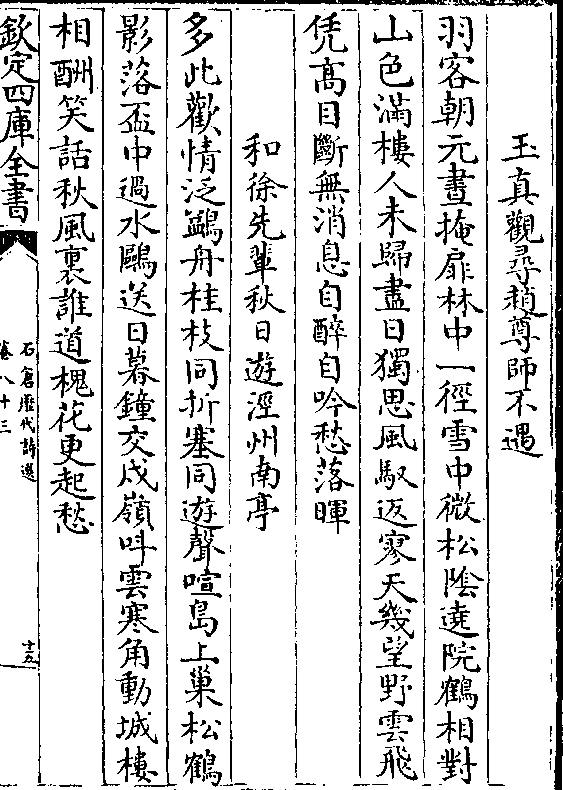 玉真觀尋趙尊師不遇
羽客朝元晝掩扉林中一徑雪中微松陰遶院鶴相對
山色滿樓人未歸盡日獨思風馭返寥天幾望野雲飛
凭髙目斷無消息自醉自吟愁落暉
和徐先輩秋日遊涇州南亭
多此歡情泛鷁舟桂枝同折塞同遊聲喧島上巢松鶴
影落盃中過水鷗送日暮鐘交戍嶺呌雲寒角動城樓
相酬笑話秋風裏誰道槐花更起愁
欽定四庫全書
石倉歴代詩選
卷八十三
十五